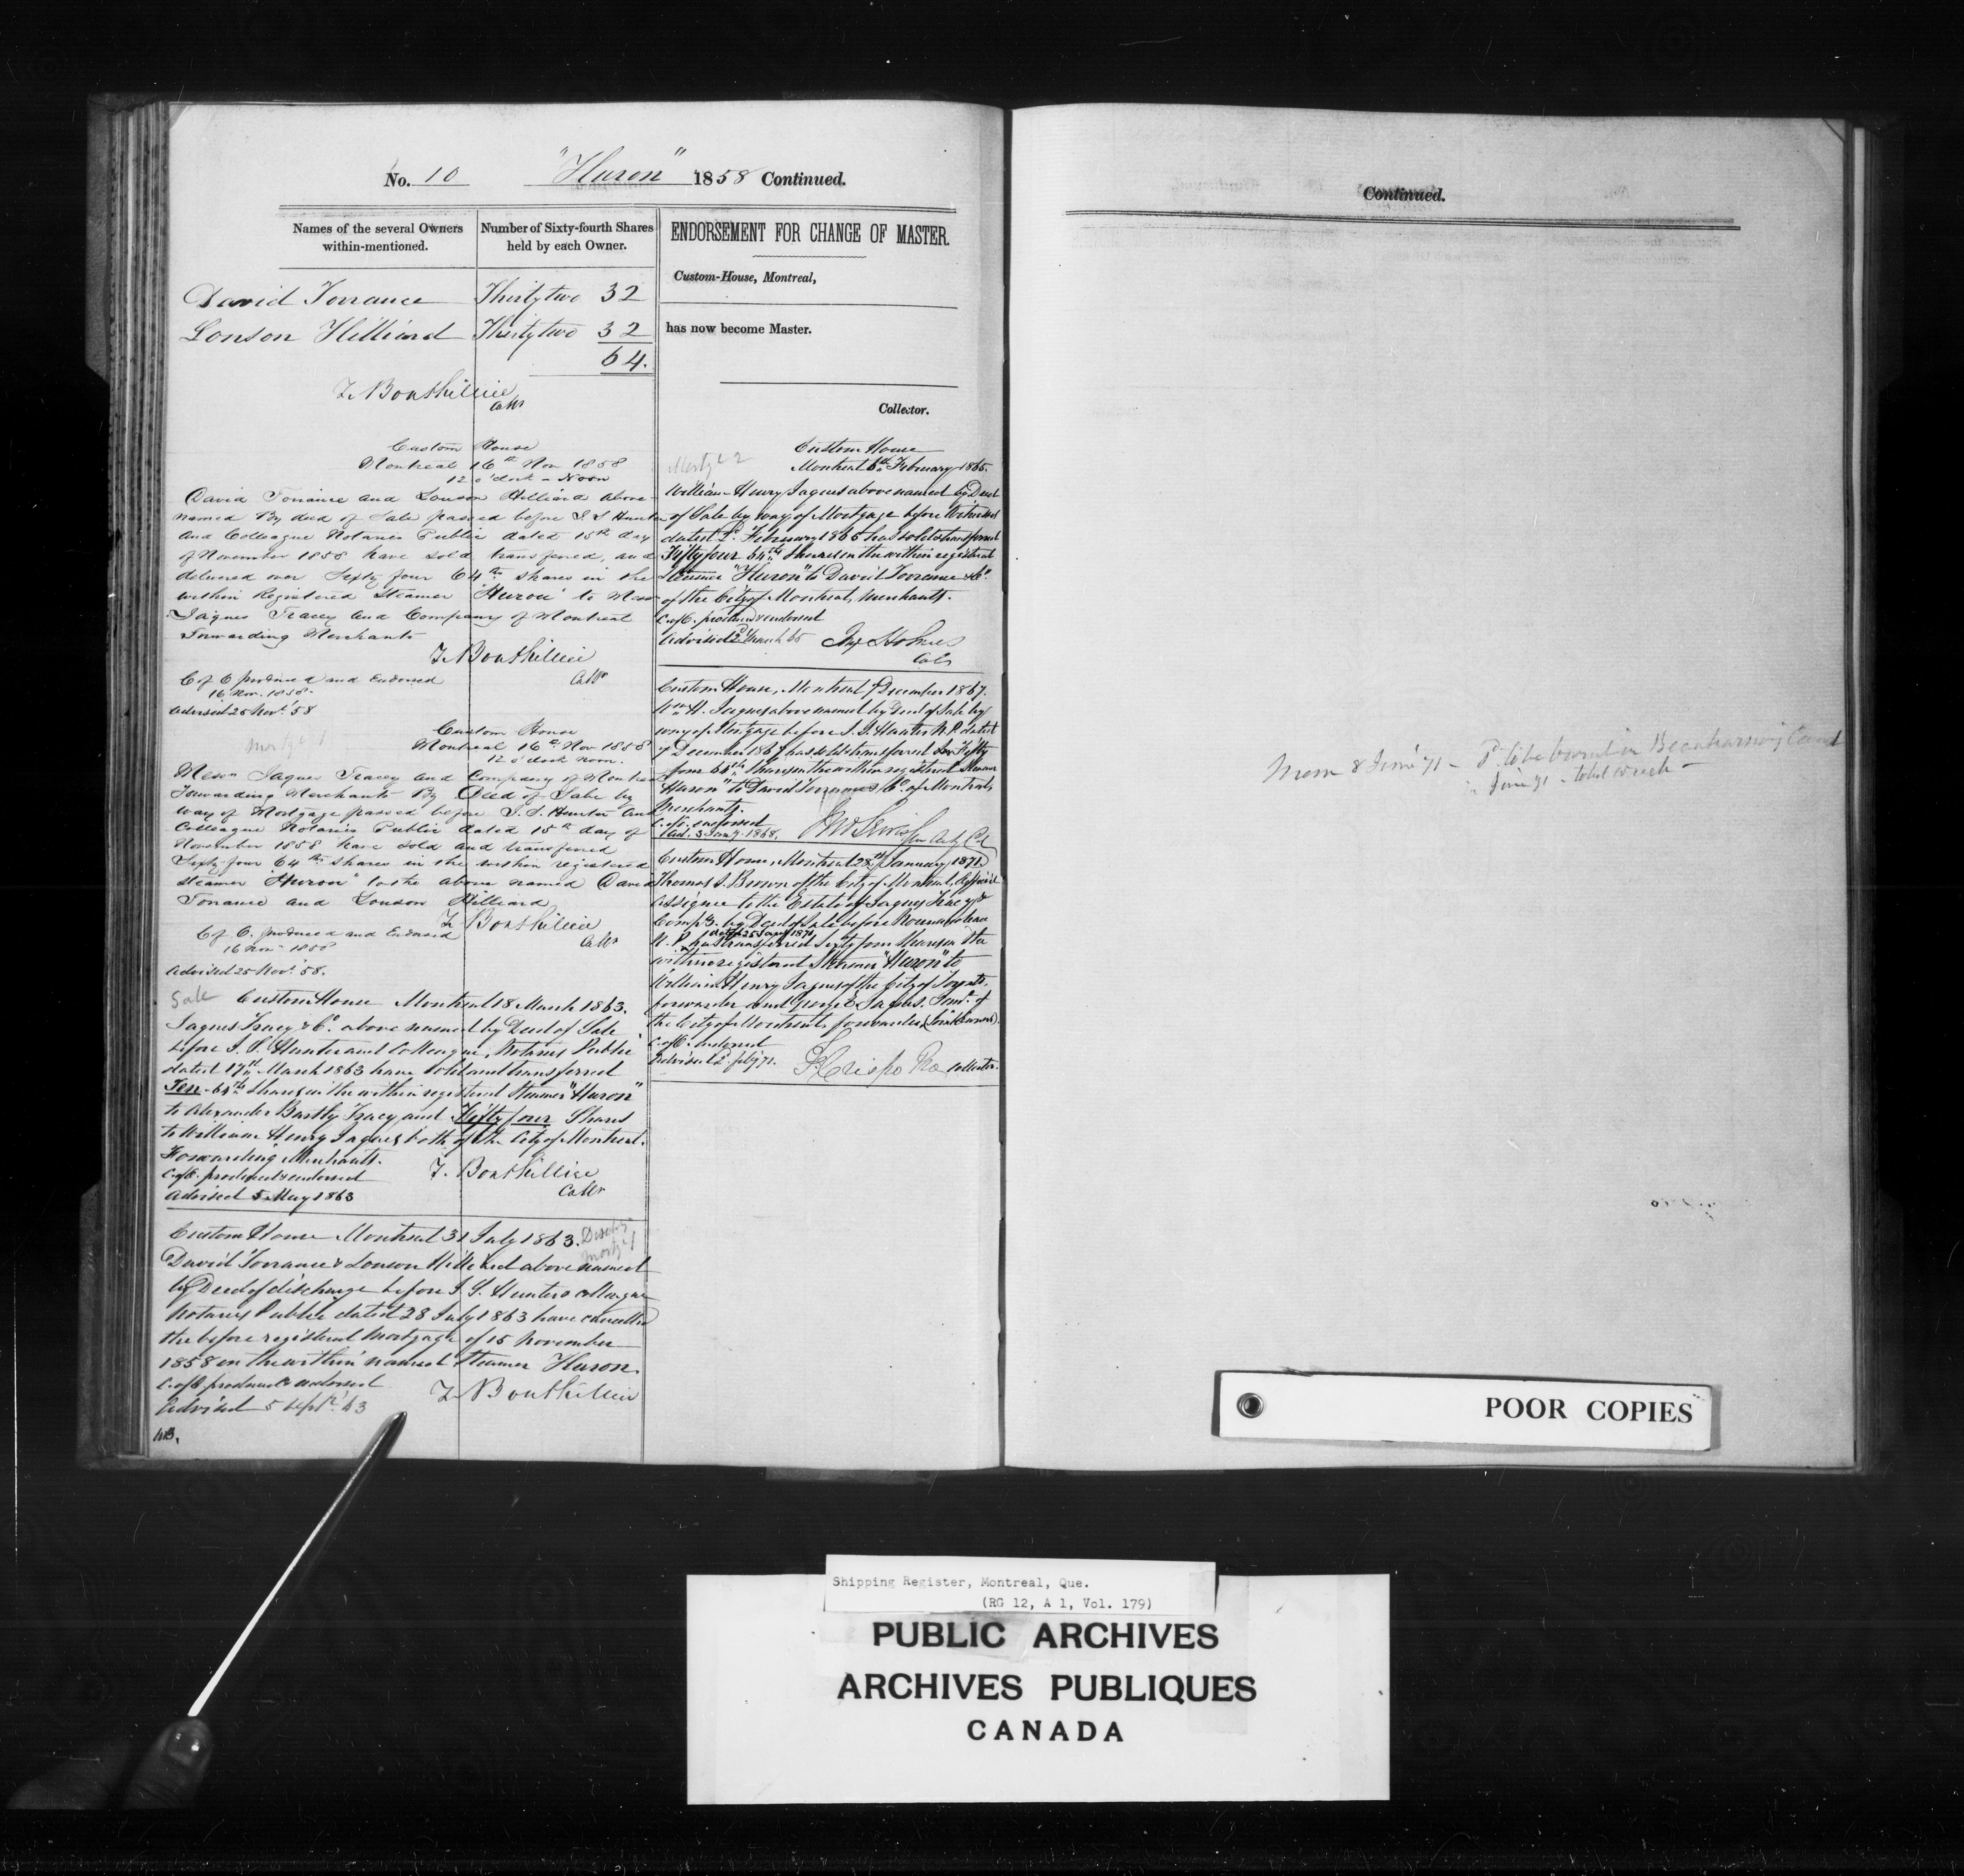 No. 10 "Huron" 1858 Continued.
Names of the several Owners within-mentioned.
Number of Sixty-fourth Shares held by each Owner.
David Torrance Thirty two 32
Lonson Hilliard Thirty two 32
64.
T. Bouthillier
Collr
Custom House
Montreal 16th Nov 1858
12 o'clock - Noon
David Torrance and Lonson Hilliard above
named By deed of Sale passed before I. S. Hunter
and Colleague Notaries Public dated 15th day
of November 1858 have sold, transferred, and
delivered over Sixty four 64ths shares in the
within Registered Steamer "Huron" to Messrs
Jaques Tracey and Company of Montreal
Forwarding Merchants
T. Bouthillier
Collr
C of O produced and Endorsed
16 Nov. 1858.
Advised 25 Novr 58
Mortge 1
Custom House
Montreal 16th Nov 1858
12 o'clock noon.
Messrs Jaques Tracey and Company of Montreal
Forwarding Merchants By Deed of Sale by
way of Mortgage passed before I. S. Hunter and
Colleague Notaries Public dated 15th day of
November 1858 have sold and transferred
Sixty four 64ths shares in the within registered
steamer "Huron" to the above named David
Torrance and Lonson Hilliard
T. Bouthillier
Collr
C of O. produced and Endorsed
16 Nov. 1858
Advised 25 Novr. 58.
Sale Custom House Montreal 18 March 1863.
Jaques Tracy & Co. above named by Deed of Sale
before I. S. Hunter and Colleague, Notaries Public
dated 17th March 1863 have sold and transferred
Ten 64ths Shares in the within registered Steamer "Huron"
to Alexander Bartly Tracy, and Fifty four Shares
to William Henry Jaques both of the City of Montreal.
Forwarding Merchants.
C. of O. produced & endorsed
Advised 5 May 1863
T. Bouthillier
Collr
Custom House Montreal 31 July 1863. Dischge
Mortge 1
David Torrance & Lonson Hilliard above named
by Deed of discharge before I. S. Hunter & colleague
Notaries Public dated 28 July 1863 have cancelled
the before registered Mortgage of 15 November
1858 on the within named Steamer Huron.
C. of O. produced & endorsed
Advised 5 Septr. 63
T. Bouthillier
ENDORSEMENT FOR CHANGE OF MASTER.
Custom-House, Montreal,
has now become Master.
Collector.
Mortge 2
Custom House
Montreal 6th February 1865.
William Henry Jaques above named by Deed
of Sale by way of Mortgage before Witnesses
dated February 1865 has sold & transferred
Fifty four 64ths Shares in the within registered
Steamer "Huron" to David Torrance & Co.
of the City of Montreal, Merchants.
C. of O. produced & endorsed
Advised 2d March 65
Collr
Custom House, Montreal 7 December 1867.
Wm H. Jaques above named by Deed of Sale by
way of Mortgage before I. S. Hunter N.P. dated
7 December 1867 has sold & transferred Fifty
four 64ths Shares in the within registered Steamer
"Huron" to David Torrance & Co. of Montreal,
Merchants.
C. of O. endorsed
Ad. 3 Jany. 1868.
Custom House, Montreal 28th January 1871.
Thomas S. Brown of the City of Montreal, Official
Assignee to the Estate of Jaques Tracy &
Compy. by Deed of Sale before
N.P. dated 25 Jany 1871 has transferred Sixty four Shares in the
within registered Steamer "Huron" to
William Henry Jaques of the City of Toronto,
forwarder and George E. Jaques. Forwr. of
the City of Montreal, forwarder, (Joint Owners).
C. of O. endorsed
Advised 2 feby 71.
Collector.
Continued.
Mem 8 June 71 - to be burnt in Beauharnois Canal
June 71 - total wreck -
POOR COPIES
Shipping Register, Montreal, Que.
(RG 12, A 1, Vol. 179)
PUBLIC ARCHIVES
ARCHIVES PUBLIQUES
CANADA